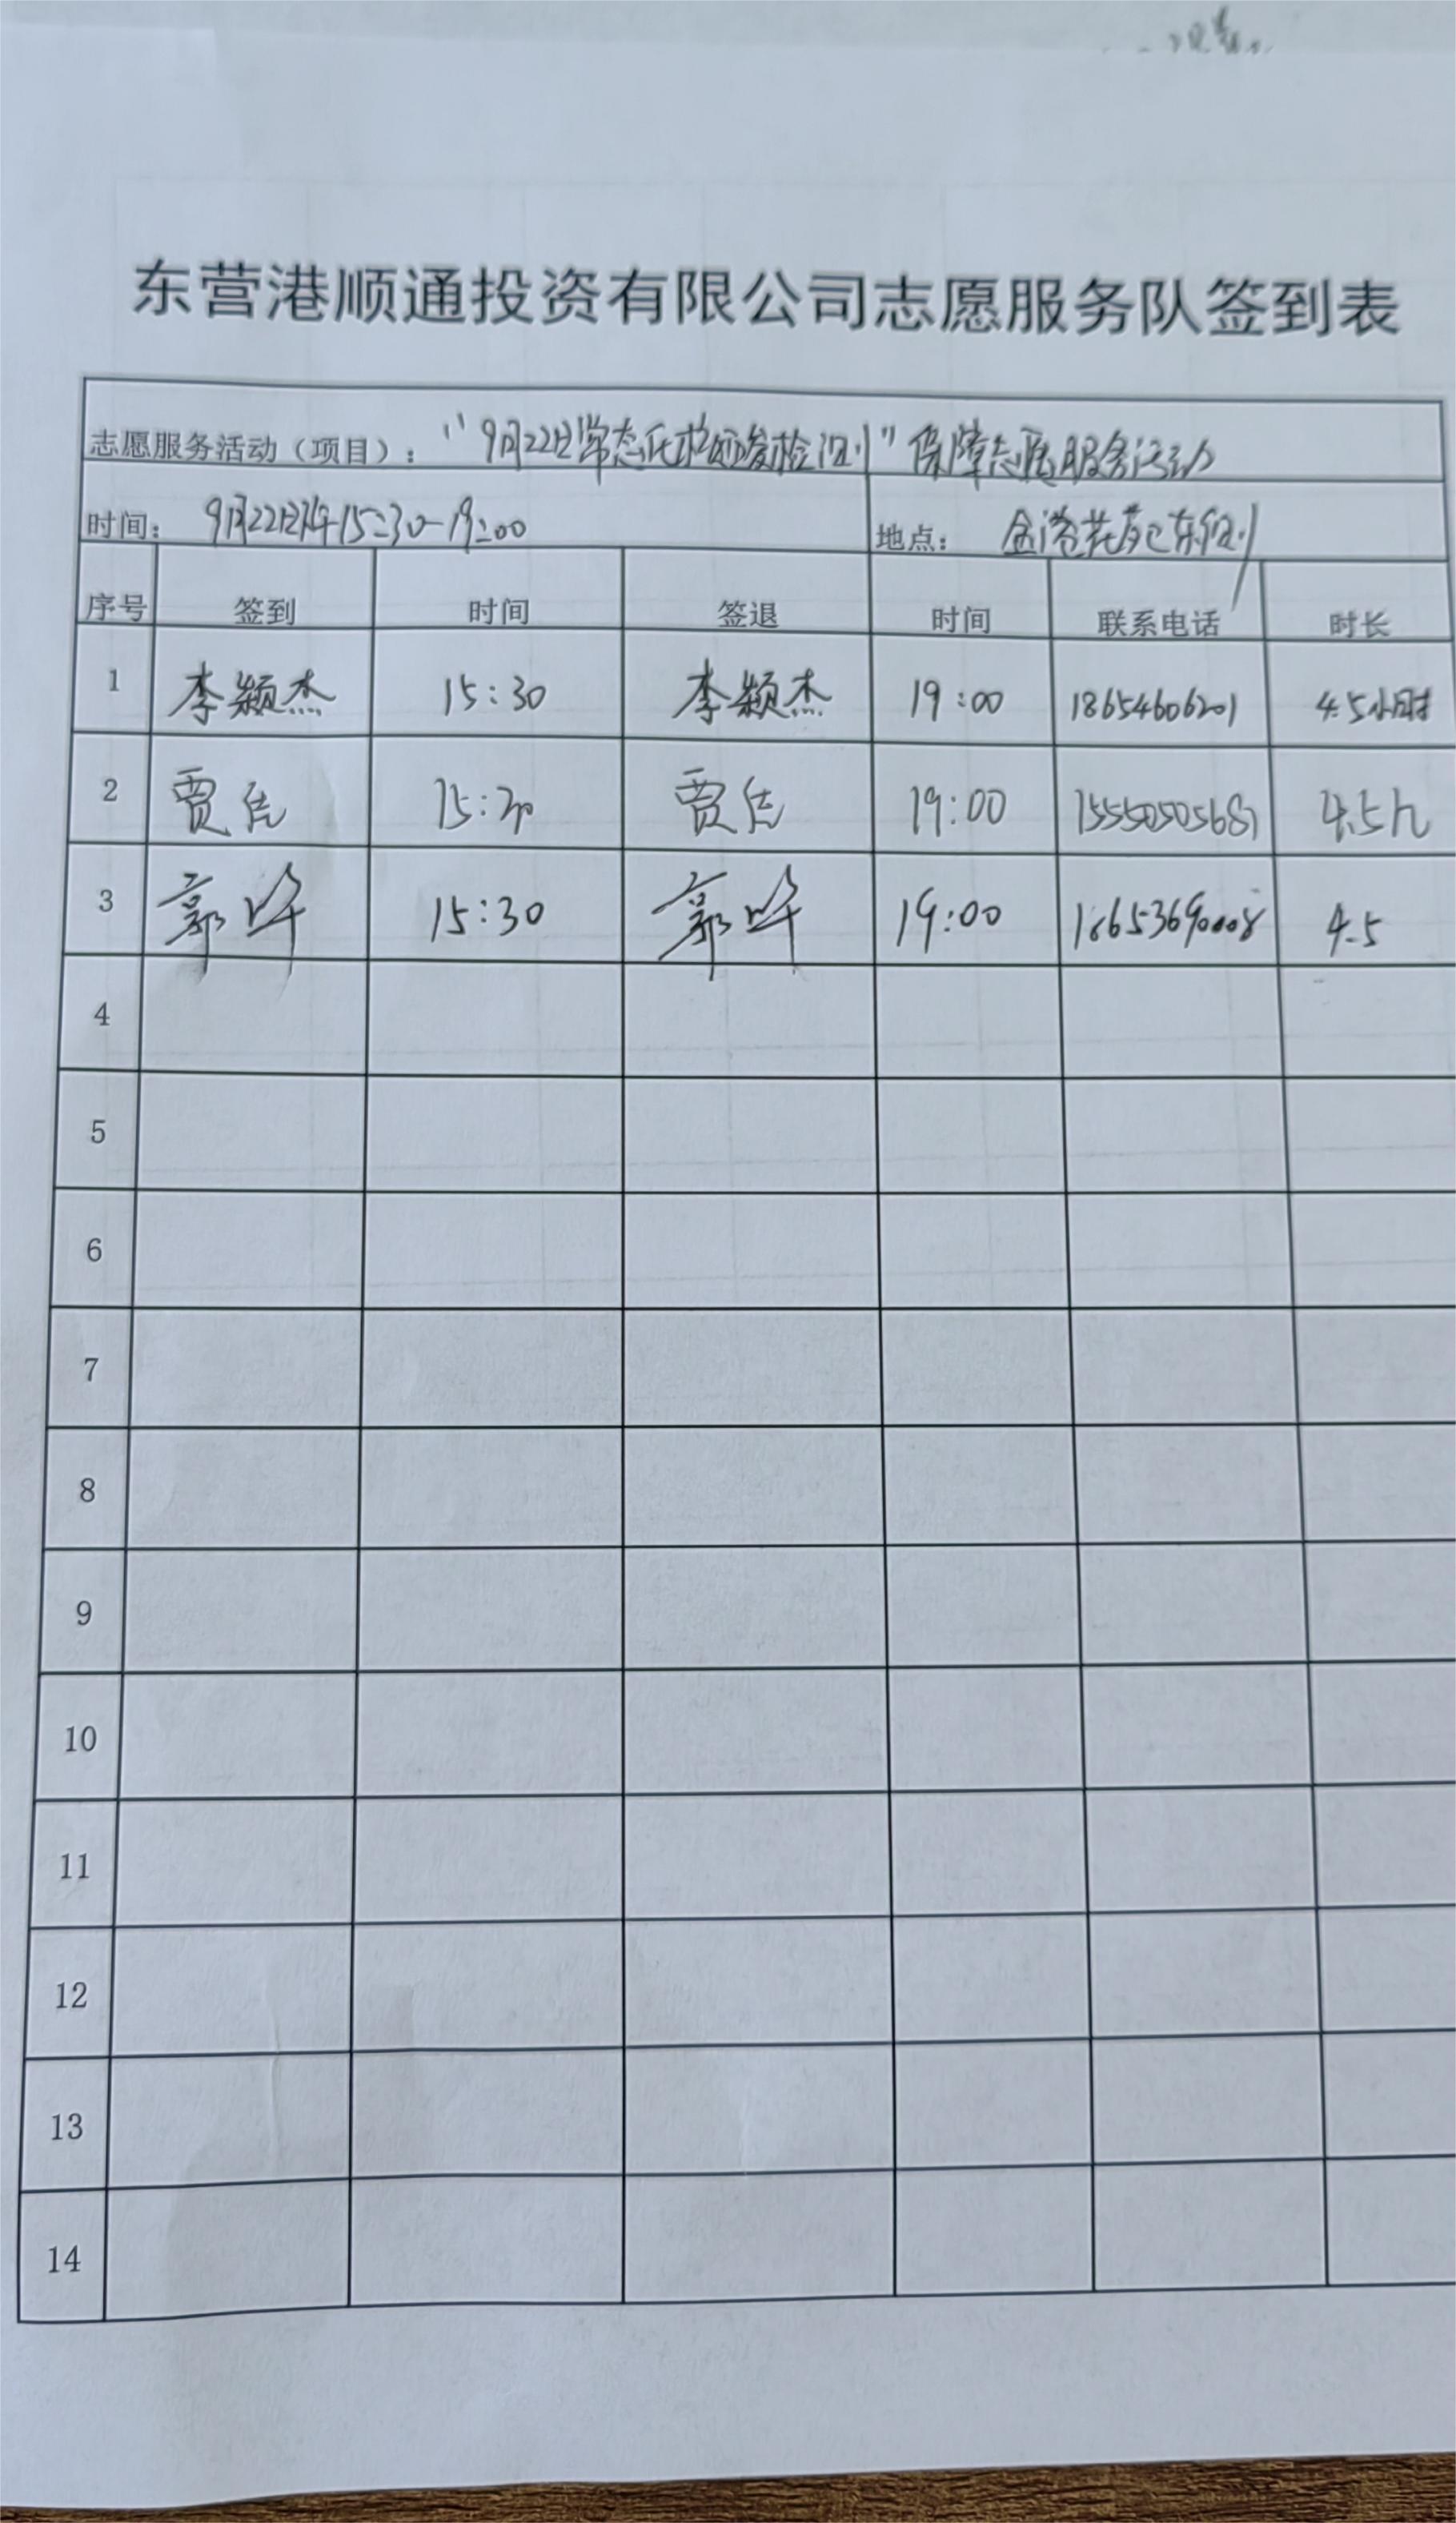 东营港顺通投资有限公司志愿服务队签到表
志愿服务活动（项目）： “9月22日常态化核酸检测”保障志愿服务活动
时间： 9月22日下午15:30-19:00 地点： 金港花苑东侧
序号 签到 时间 签退 时间 联系电话 时长
1 李颖杰 15:30 李颖杰 19:00 18654606201 4.5小时
2 贾 15:30 贾 19:00 15550505681 4.5h
3 郭 15:30 郭 19:00 4.5
4
5
6
7
8
9
10
11
12
13
14